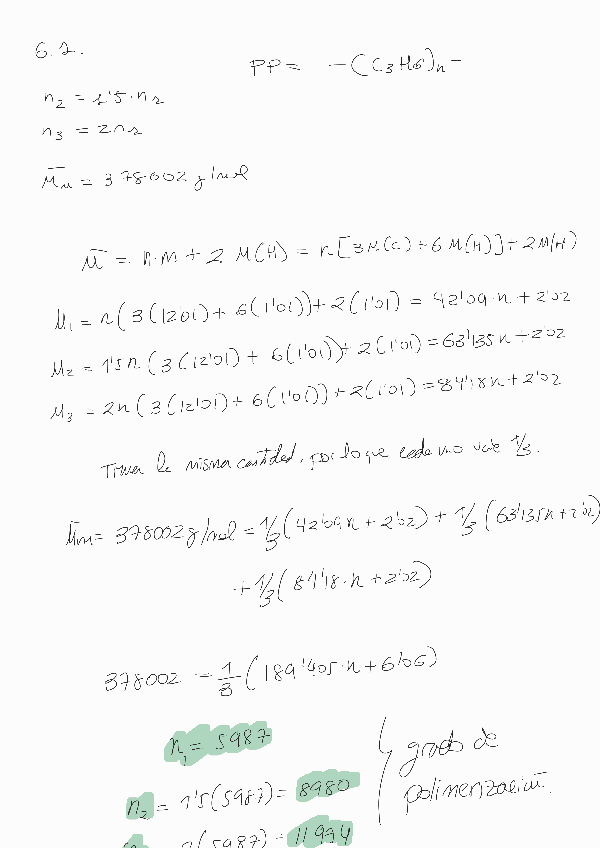 6.2.
PP = -(C3H6)n-
n2 = 1'5·n1
n3 = 2n1
M̄n = 378.002 g/mol
M̄ = n·m + 2 M(H) = n[3M(C) + 6M(H)] + 2M(H)
M1 = n(3(12'01) + 6(1'01)) + 2(1'01) = 42'09·n + 2'02
M2 = 1'5n(3(12'01) + 6(1'01)) + 2(1'01) = 63'135n + 2'02
M3 = 2n(3(12'01) + 6(1'01)) + 2(1'01) = 84'18n + 2'02
la misma cantidad, por lo que cada uno vale 1/3.
M̄m = 378002 g/mol = 1/3(42'09n + 2'02) + 1/3(63'135n + 2'02)
+ 1/3(84'18·n + 2'02)
378002 = 1/3(189'405·n + 6'06)
n1 = 5987
grado de
polimerización.
n2 = 1'5(5987) = 8980
2(5987) = 11994